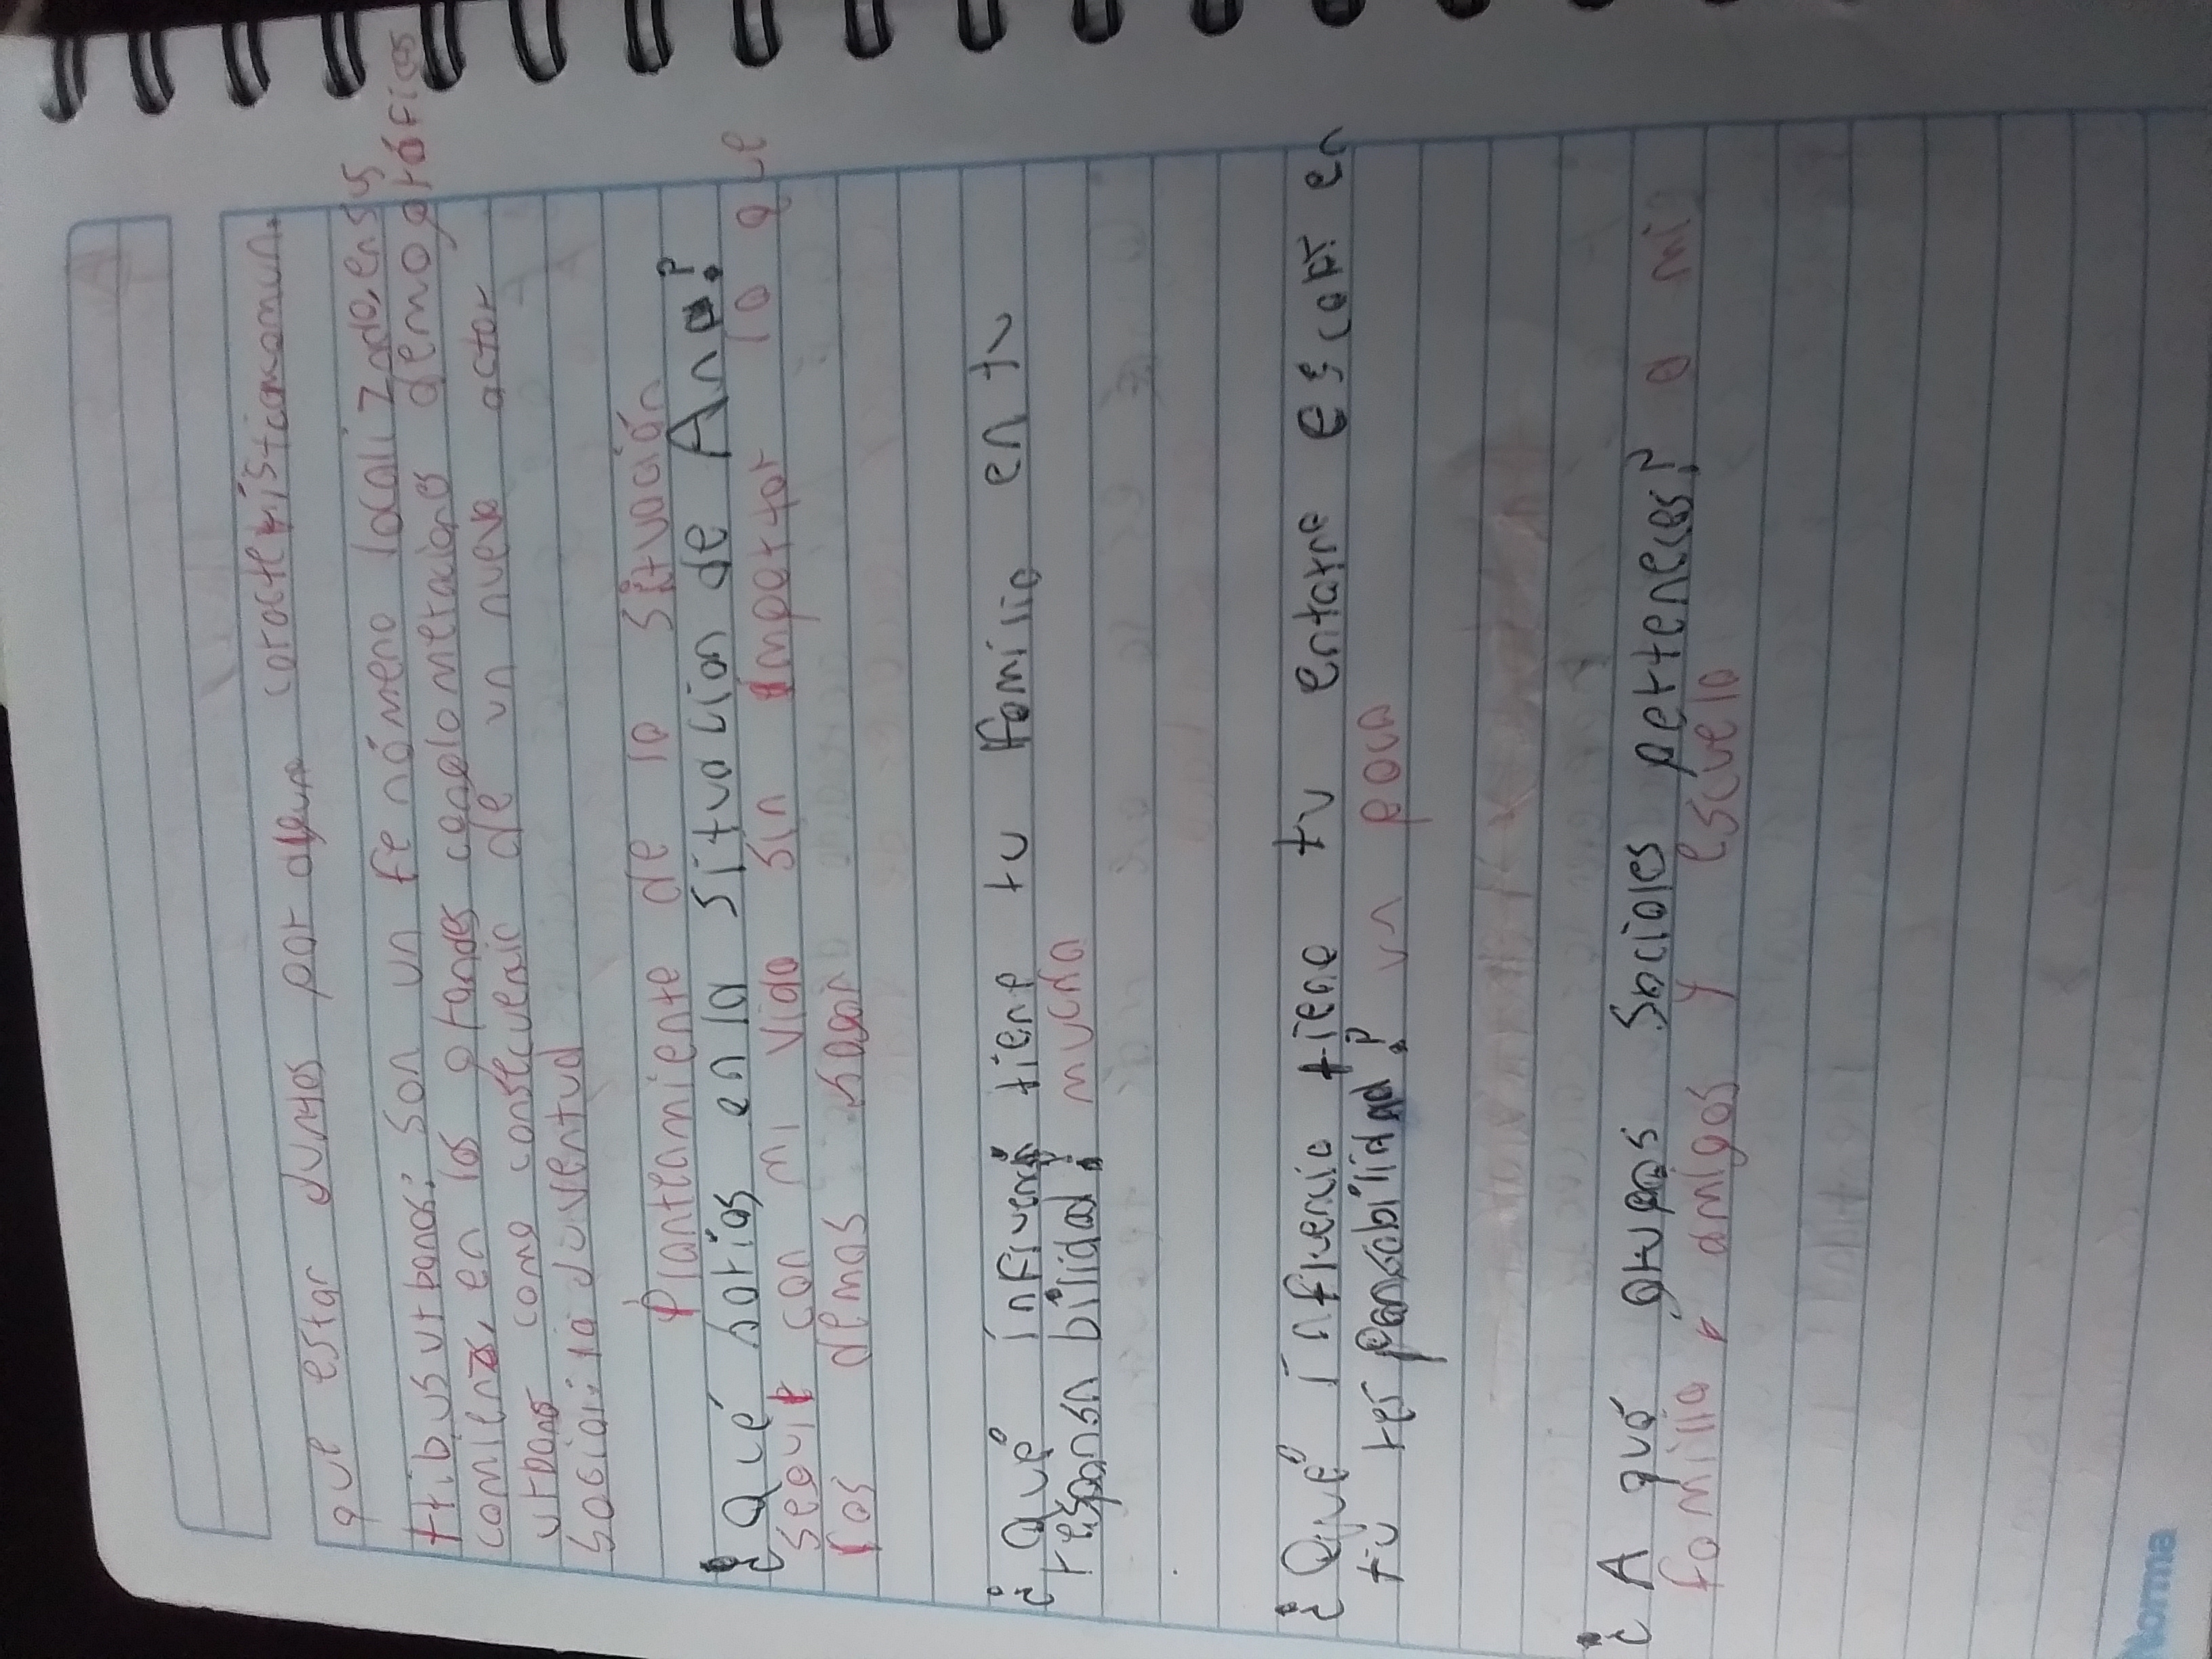 que estar juntos por alguna caracteristicacomun.
tribus urbanos: son un fenómeno localizado, en sus
comienzos, en las grandes conglomeraciones demográficas
urbanas como consecuencia de un nuevo actor
social: la juventud
Planteamiente de la situación
¿Qué harías en la situación de Ana?
seguir con mi vida sin importar lo que
los demas hagan
¿Qué influencia tiene tu familia en tu
responsabilidad? mucha
¿Qué influencia tiene tu entorne escolar en
tu responsabilidad? un poco
¿A qué grupos Sociales perteneces? a mi
familia, amigos y escuela
Norma